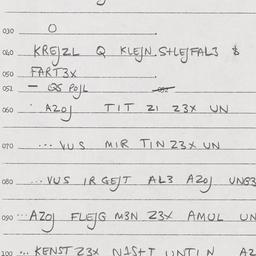 030 O
040 KREJZL Q KLEJN.S+LEJFAL3 $
050 FART3X
051 — QS POJL
060 · AZOJ TIT ZI Z3X UN
070 ... VUS MIR TIN Z3X UN
080 ... VUS IR GEJT AL3 AZOJ UNG3
090 ... AZOJ FLEJG M3N Z3X AMUL UN
100 ... KENST Z3X NIS+T UNTIN AZ